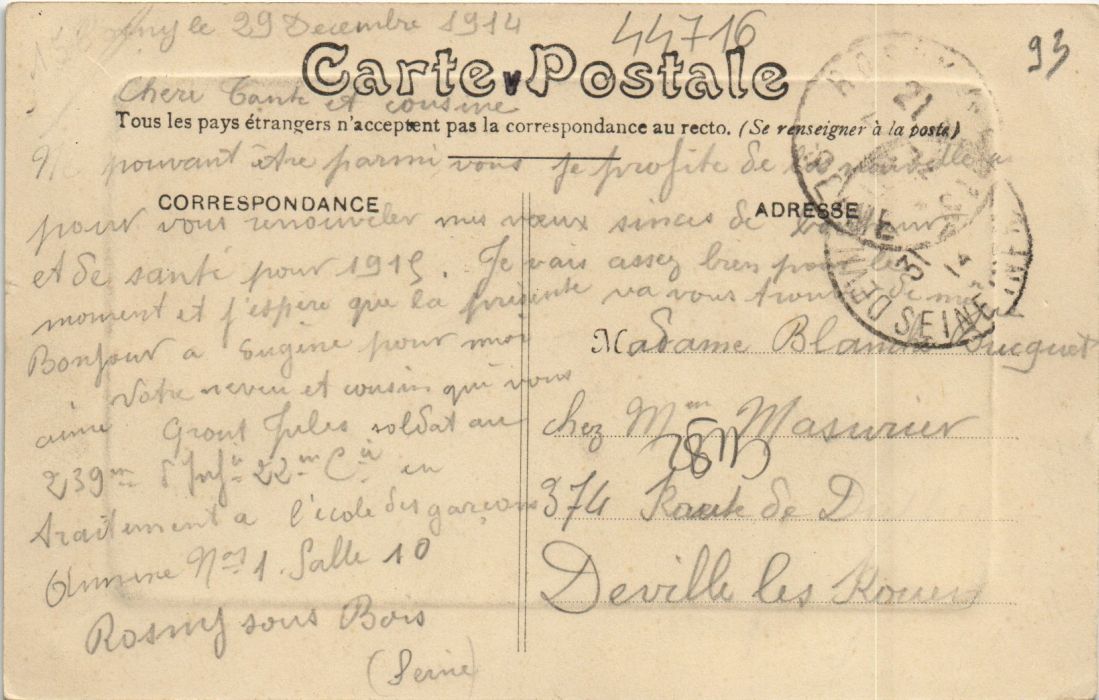 le 29 Decembre 1914
44716
93
Carte Postale
Chere Tante et cousine
Tous les pays étrangers n'acceptent pas la correspondance au recto. (Se renseigner à la poste)
pouvant être parmi vous je profite de la
CORRESPONDANCE
ADRESSE
pour vous renouveler mes vœux de
et de santé pour 1915. Je vais assez bien pour le
moment et j'espere que la présente va vous de
Bonjour a Eugène pour moi
Votre neveu et cousin qui vous
aime Grout Jules soldat au
239em d'Infie 22em Cie en
traitement a l'école des garçons
Annexe Nos 1. Salle 10
Rosny sous Bois
(Seine)
Madame
chez Mme Masurier
374 Route de D
Deville les Rouen
21
31
14
SEINE